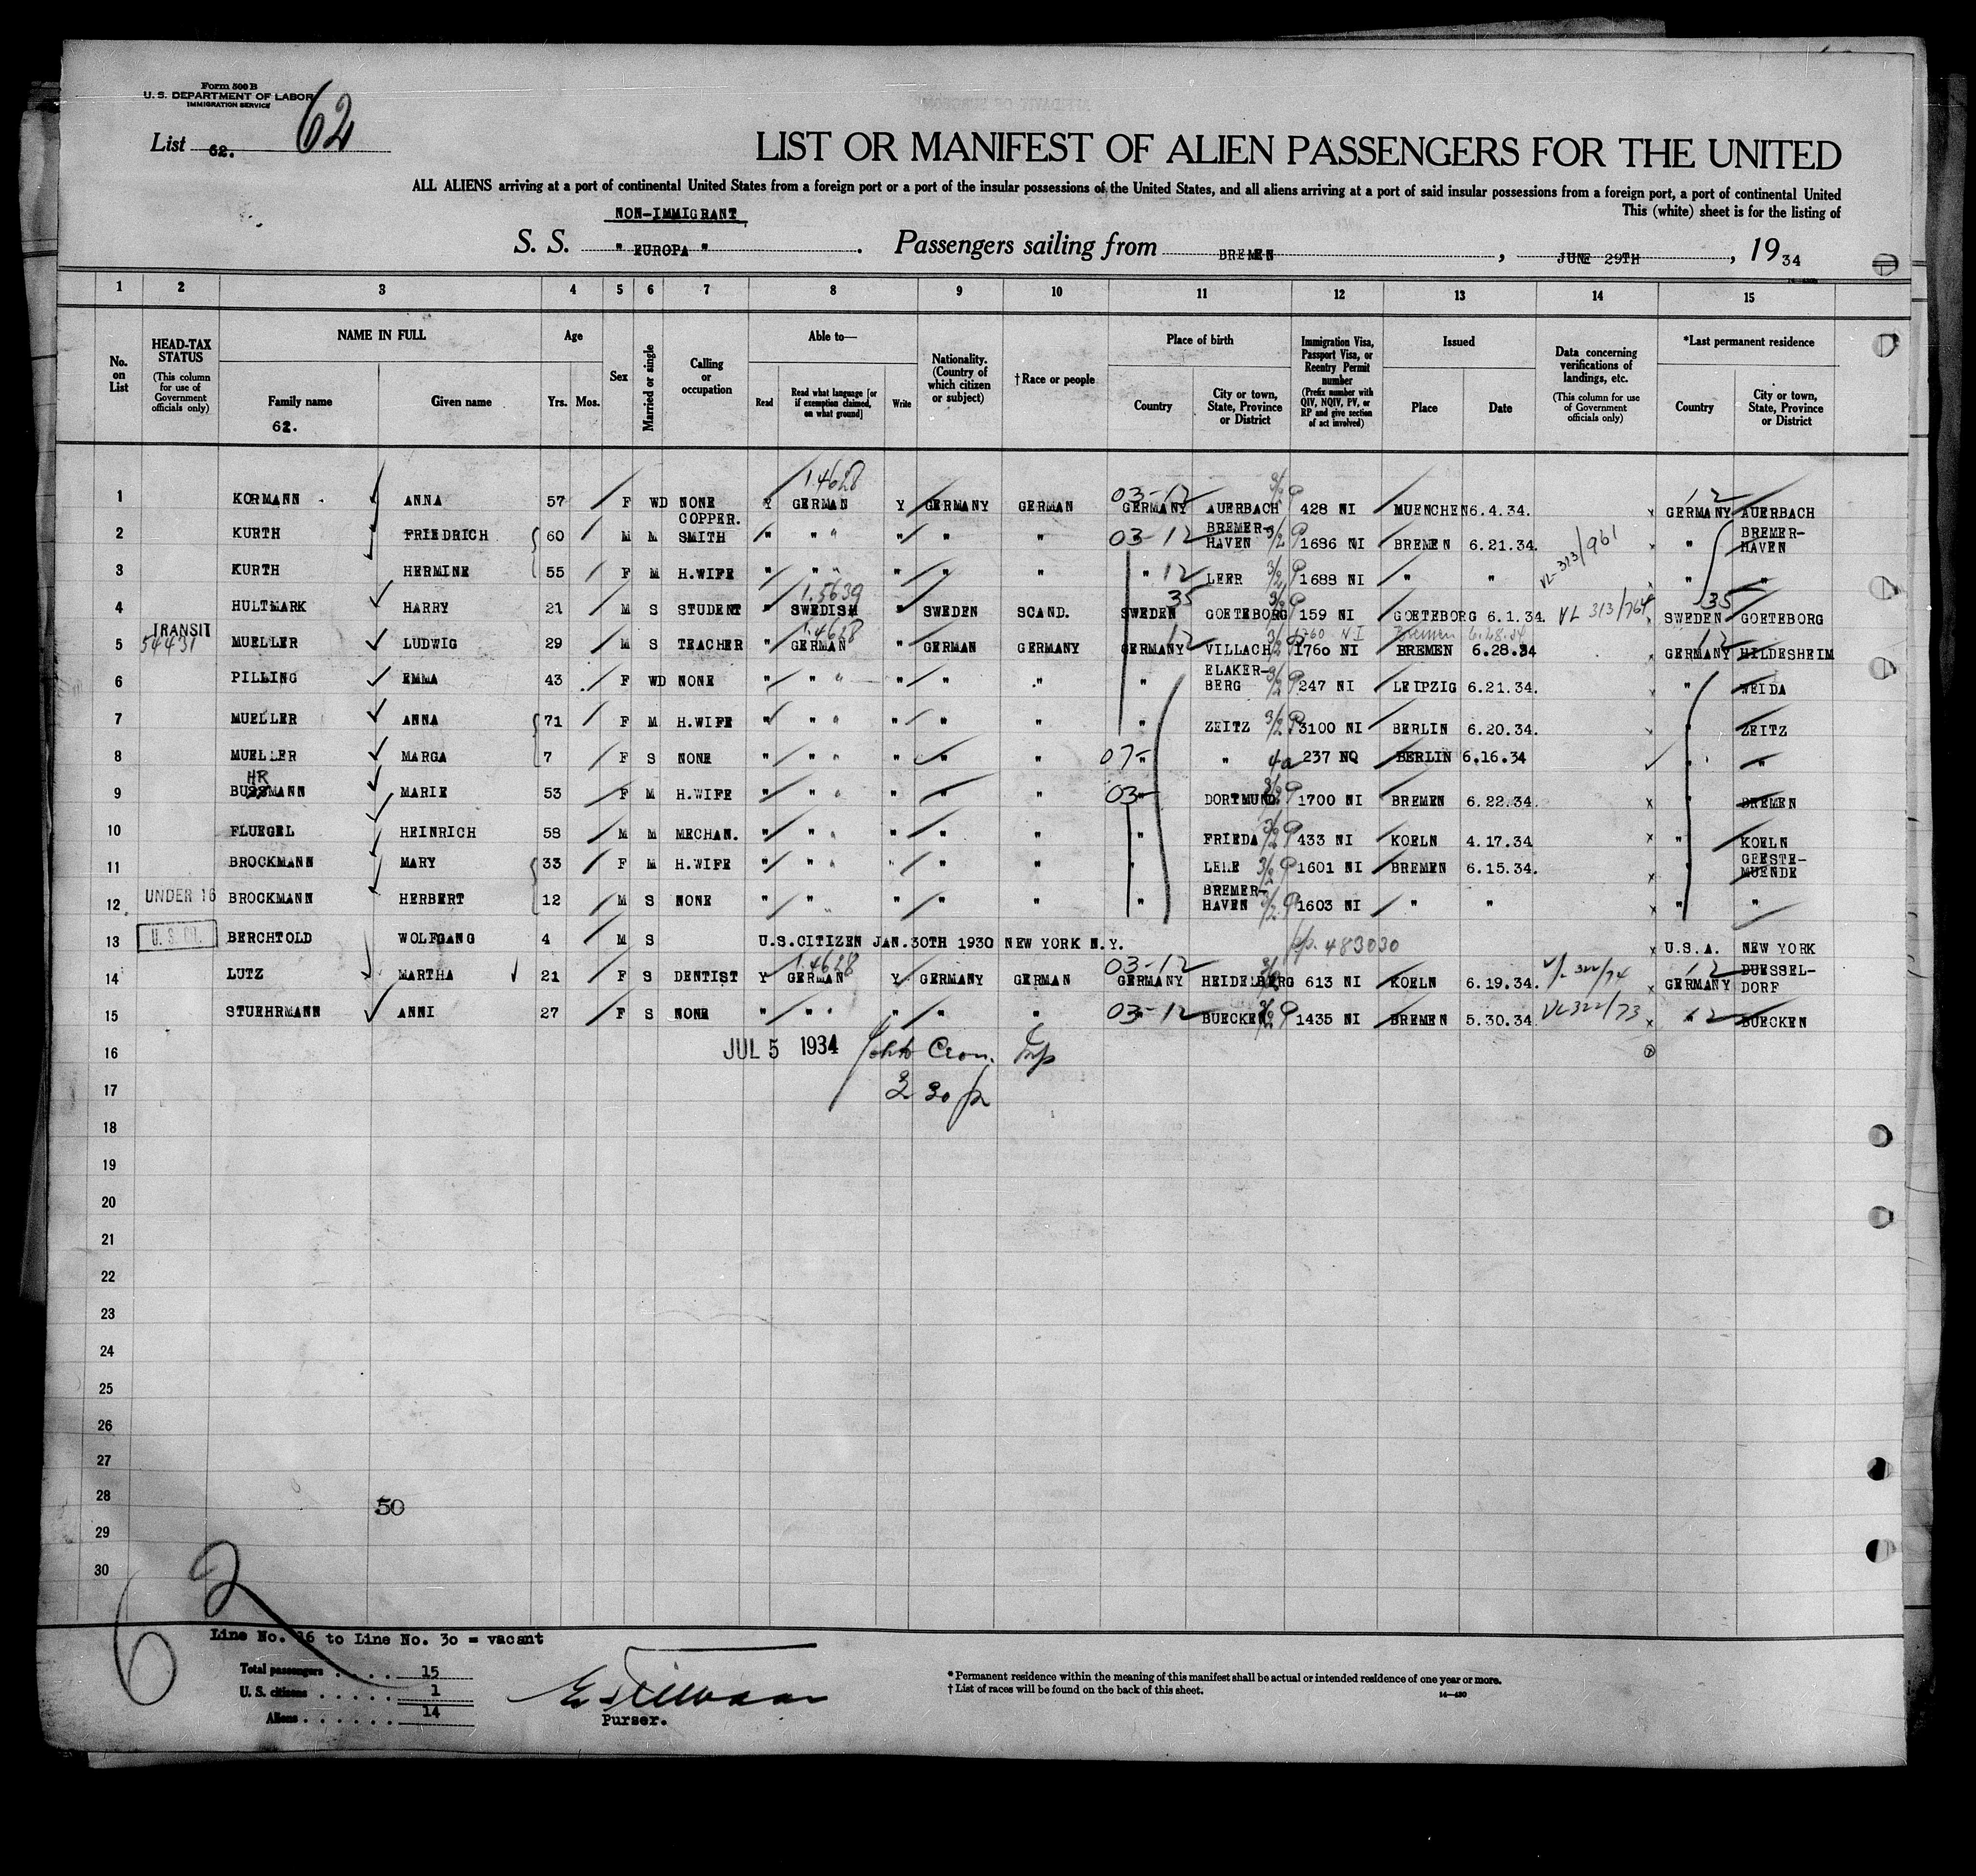 Form 500 B
U. S. DEPARTMENT OF LABOR
IMMIGRATION SERVICE
List 62. 62
LIST OR MANIFEST OF ALIEN PASSENGERS FOR THE UNITED
ALL ALIENS arriving at a port of continental United States from a foreign port or a port of the insular possessions of the United States, and all aliens arriving at a port of said insular possessions from a foreign port, a port of continental United
This (white) sheet is for the listing of
NON-IMMIGRANT
S. S. " EUROPA " . Passengers sailing from BREMEN , JUNE 29TH , 19 34
1 2 3 4 5 6 7 8 9 10 11 12 13 14 15
No. on List
HEAD-TAX STATUS (This column for use of Government officials only)
NAME IN FULL
Family name
62.
Given name
Age
Yrs. Mos.
Sex
Married or single
Calling or occupation
Able to—
Read
Read what language [or if exemption claimed, on what ground]
Write
Nationality. (Country of which citizen or subject)
† Race or people
Place of birth
Country
City or town, State, Province or District
Immigration Visa, Passport Visa, or Reentry Permit number (Prefix number with QIV, NQIV, PV, or RP and give section of act involved)
Issued
Place
Date
Data concerning verifications of landings, etc. (This column for use of Government officials only)
*Last permanent residence
Country
City or town, State, Province or District
1 KORMANN ANNA 57 F WD NONE Y GERMAN 1.4628 Y GERMANY GERMAN 03-12 GERMANY AUERBACH 3/2 P 428 NI MUENCHEN 6.4.34. x GERMANY 12 AUERBACH
2 KURTH FRIEDRICH 60 M M COPPER. SMITH " " " " " " 03-12 BREMER-HAVEN 3/2 P 1686 NI BREMEN 6.21.34. VL-313/961 x " BREMER-HAVEN
3 KURTH HERMINE 55 F M H.WIFE " " " " " " " 12 LEER 3/2 P 1688 NI " " " "
4 HULTMARK HARRY 21 M S STUDENT " SWEDISH 1.5639 " SWEDEN SCAND. SWEDEN 35 GOETEBORG 3/2 P 159 NI GOETEBORG 6.1.34. VL 313/764 x SWEDEN 35 GOETEBORG
TRANSIT 54431
5 MUELLER LUDWIG 29 M S TEACHER " GERMAN 1.4628 " GERMAN GERMANY GERMANY 12 VILLACH 3/2 P 1760 NI 1760 NI Bremen 6.28.34 BREMEN 6.28.34 GERMANY 12 HILDESHEIM
6 PILLING EMMA 43 F WD NONE " " " " " " " ELAKER-BERG 3/2 P 247 NI LEIPZIG 6.21.34. x " WEIDA
7 MUELLER ANNA 71 F M H.WIFE " " " " " " " ZEITZ 3/2 P 3100 NI BERLIN 6.20.34. ZEITZ
8 MUELLER MARGA 7 F S NONE " " " " " " 07- " 4a 237 NQ BERLIN 6.16.34 " "
9 BUSSMANN HR MARIE 53 F M H.WIFE " " " " " " 03- DORTMUND 3/2 P 1700 NI BREMEN 6.22.34. x " BREMEN
10 FLUEGEL HEINRICH 58 M M MECHAN. " " " " " " " FRIEDA 3/2 P 433 NI KOELN 4.17.34 x " KOELN
11 BROCKMANN MARY 33 F M H.WIFE " " " " " " " LEHE 3/2 P 1601 NI BREMEN 6.15.34. x " GEESTE-MUENDE
12 UNDER 16 BROCKMANN HERBERT 12 M S NONE " " " " " " " BREMER-HAVEN 3/2 P 1603 NI " " x " "
13 U. S. CIT. BERCHTOLD WOLFGANG 4 M S U.S.CITIZEN JAN.30TH 1930 NEW YORK N.Y. pp. 483030 x U.S.A. NEW YORK
14 LUTZ MARTHA 21 F S DENTIST Y GERMAN 1.4628 Y GERMANY GERMAN 03-12 GERMANY HEIDELBERG 3/2 613 NI KOELN 6.19.34. VL 322/74 x GERMANY 12 DUESSEL-DORF
15 STUEHRMANN ANNI 27 F S NONE " " " " " " 03-12 BUECKEN 3/2 P 1435 NI BREMEN 5.30.34 VL322/73 x " 12 BUECKEN
16 JUL 5 1934 Insp
17 2 30 p
18
19
20
21
22
23
24
25
26
27
28
50
29
30
62
Line No. 16 to Line No. 30 = vacant
Total passengers . . . . 15
U. S. citizens . . . . . 1
Aliens . . . . . . 14
Purser.
* Permanent residence within the meaning of this manifest shall be actual or intended residence of one year or more.
† List of races will be found on the back of this sheet.
14—430